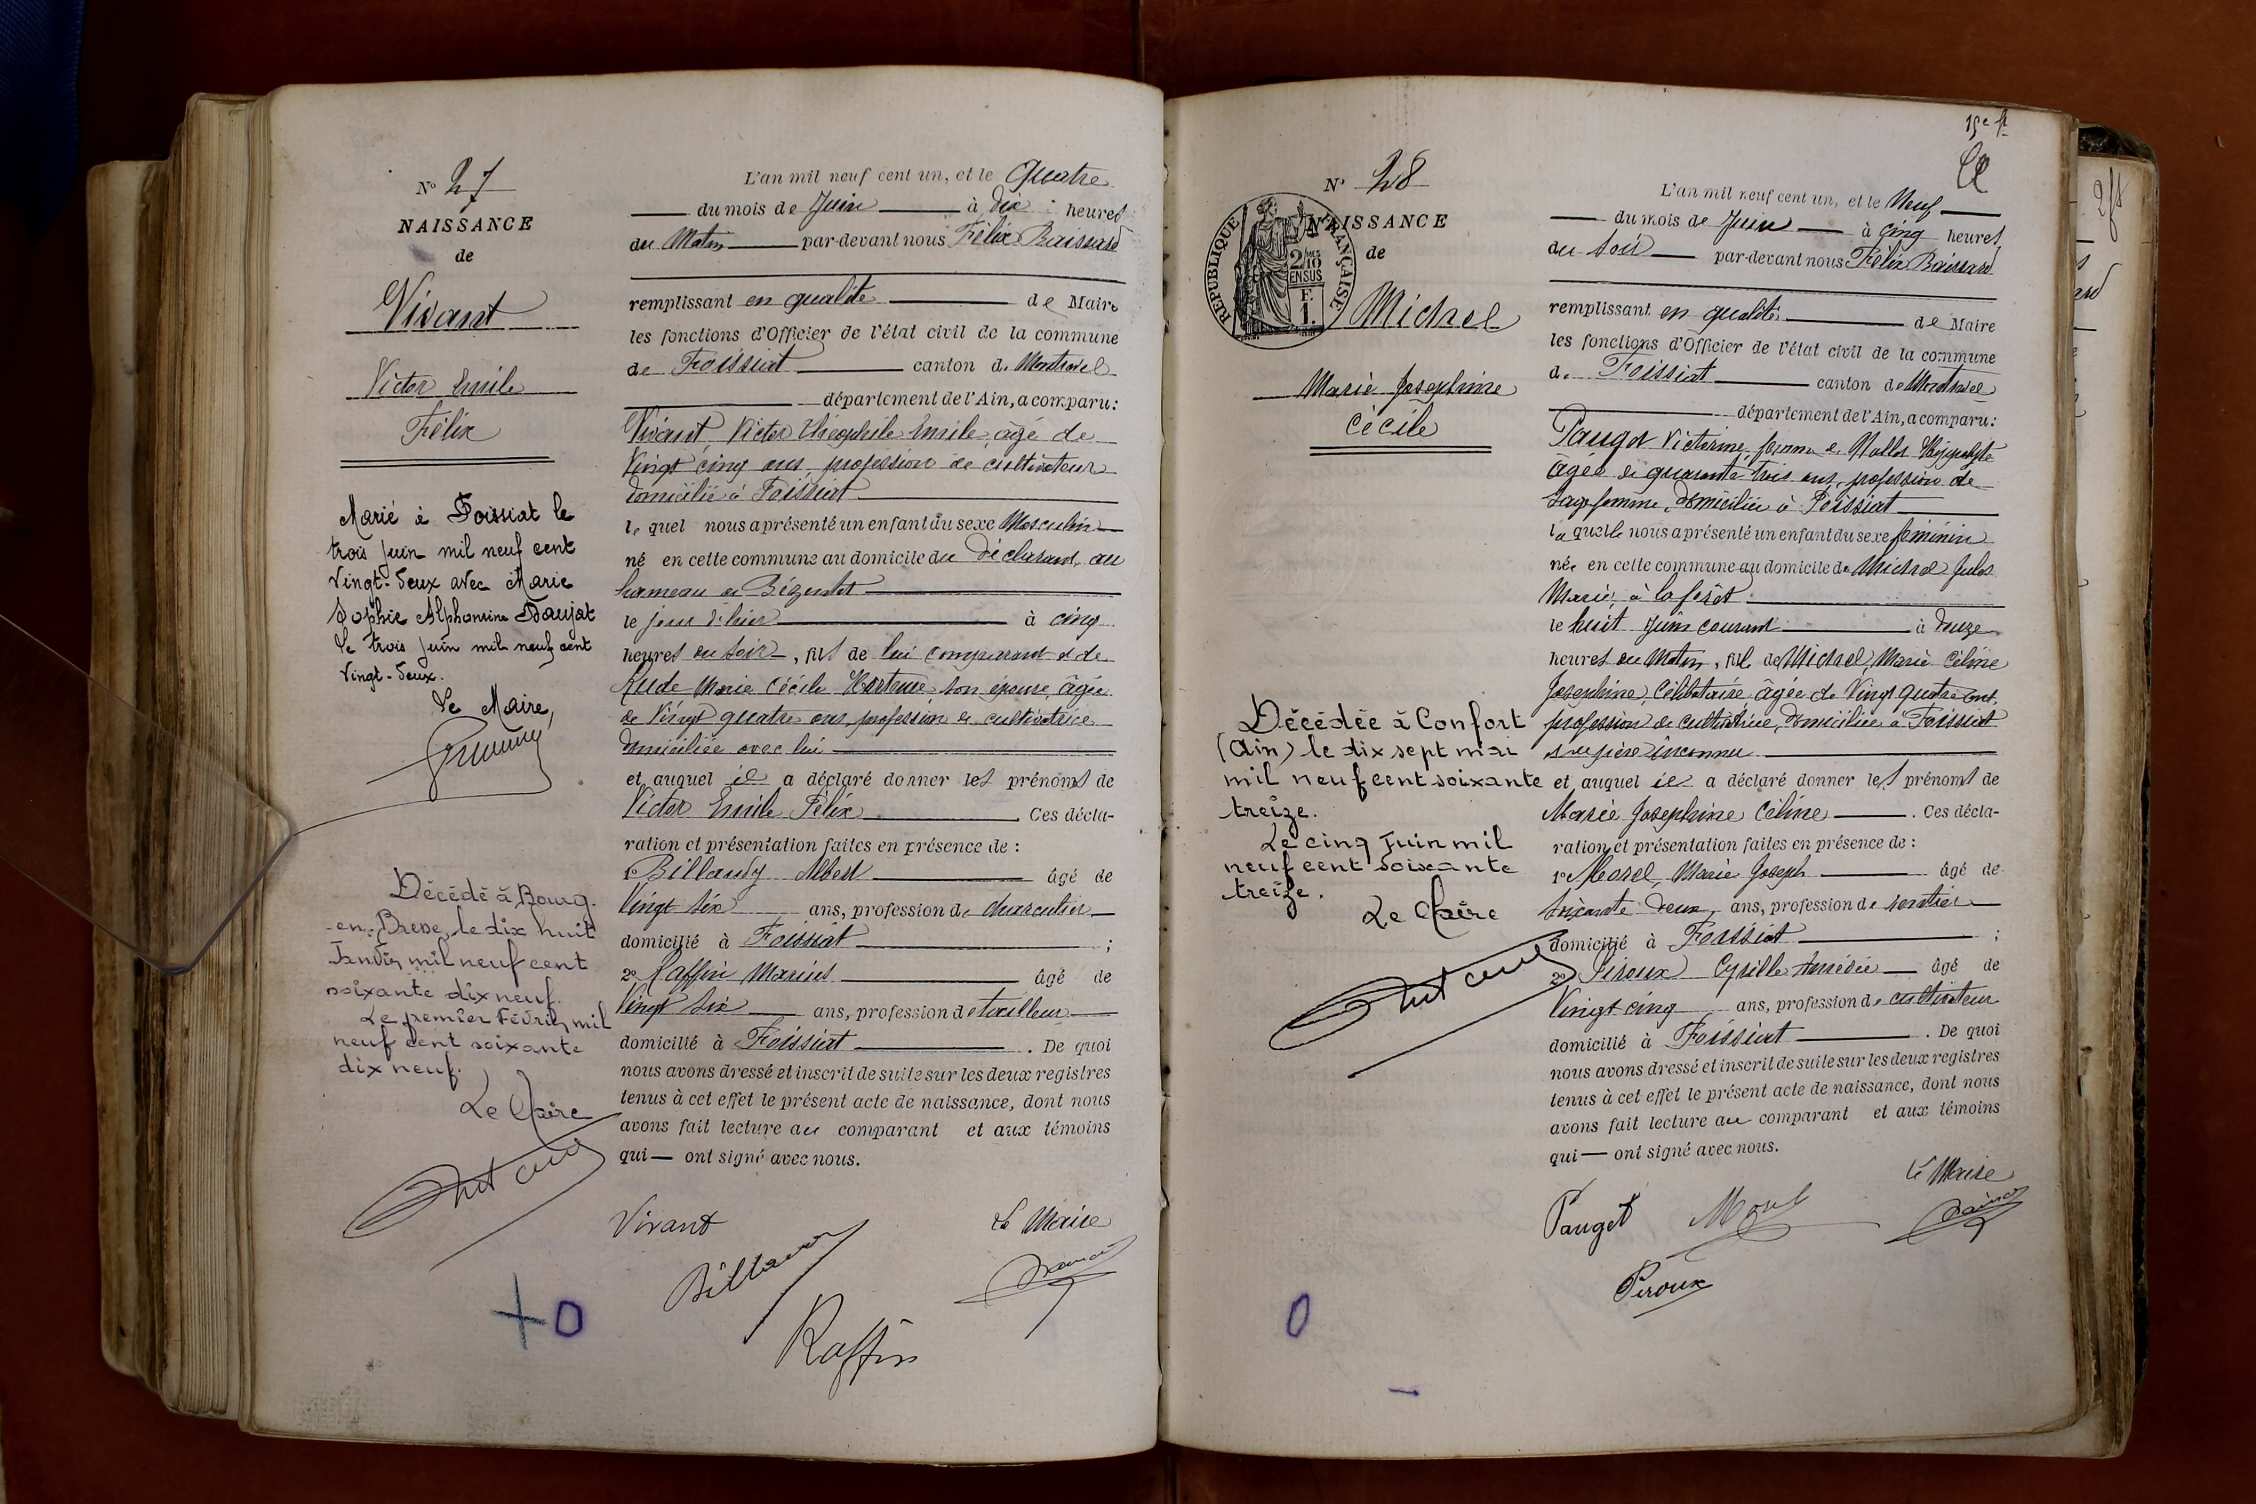 N° 27
NAISSANCE
de
Vivant
Victor Emile
Félix
Marié à Foissiat le
trois Juin mil neuf cent
Vingt-Deux avec Marie
Sophie Alphonsine Daujat
Le trois Juin mil neuf cent
Vingt-Deux.
Le Maire,
Décédé à Bourg-
en-Bresse, le dix huit
Janvier mil neuf cent
soixante dix neuf.
Le premier Février mil
neuf cent soixante
dix neuf.
Le Maire
L'an mil neuf cent un, et le Quatre
du mois de Juin à Dix heures
du Matin par-devant nous Félix Baissard
remplissant en qualité de Maire
les fonctions d'Officier de l'état civil de la commune
de Foissiat canton de Montrevel
département de l'Ain, a comparu :
Vivant Victor Théophile Emile, âgé de
Vingt cinq ans, profession de cultivateur
domicilié à Foissiat
lequel nous a présenté un enfant du sexe Masculin
né en cette commune au domicile du Déclarant, au
hameau de
le jour d'hier à cinq
heures du soir, fils de lui comparant et de
Aude Marie Cécile Hortense son épouse, âgée
de Vingt quatre ans, profession de cultivatrice
domiciliée avec lui
et auquel il a déclaré donner les prénoms de
Victor Emile Félix . Ces décla-
ration et présentation faites en présence de :
1° Billaudy Albert âgé de
Vingt six ans, profession de charcutier
domicilié à Foissiat ;
2° Raffin Marius âgé de
Vingt six ans, profession de tailleur
domicilié à Foissiat . De quoi
nous avons dressé et inscrit de suite sur les deux registres
tenus à cet effet le présent acte de naissance, dont nous
avons fait lecture au comparant et aux témoins
qui — ont signé avec nous.
Vivant
Le Maire
Raffin
15e ft
N° 28
NAISSANCE
de
RÉPUBLIQUE FRANÇAISE
2/10
EN SUS
F.
1.
Michel
Marie Josephine
Cécile
Décédée à Confort
(Ain) le dix sept mai
mil neuf cent soixante
treize.
Le cinq Juin mil
neuf cent soixante
treize.
Le Maire
L'an mil neuf cent un, et le Neuf
du mois de Juin à cinq heures
du soir par-devant nous Félix Baissard
remplissant en qualité de Maire
les fonctions d'Officier de l'état civil de la commune
de Foissiat canton de Montrevel
département de l'Ain, a comparu :
Pauget Victorine, femme de Nallet Hippolyte
âgée de quarante trois ans, profession de
sage femme, domiciliée à Foissiat
laquelle nous a présenté un enfant du sexe féminin
née en cette commune au domicile de Michel Jules
Marie, à la forêt
le huit Juin courant à onze
heures du Matin, fille de Michel, Marie Céline
Josephine, Célibataire, âgée de Vingt quatre ans,
profession de cultivatrice, domiciliée à Foissiat
et de père inconnu
et auquel il a déclaré donner les prénoms de
Marie Josephine Céline . Ces décla-
ration et présentation faites en présence de :
1° Morel, Marie Joseph âgé de
soixante deux ans, profession de rentier
domicilié à Foissiat ;
2° Piroux Cyrille Amédée âgé de
Vingt cinq ans, profession de cultivateur
domicilié à Foissiat . De quoi
nous avons dressé et inscrit de suite sur les deux registres
tenus à cet effet le présent acte de naissance, dont nous
avons fait lecture au comparant et aux témoins
qui — ont signé avec nous.
Le Maire
Pauget Morel
Piroux